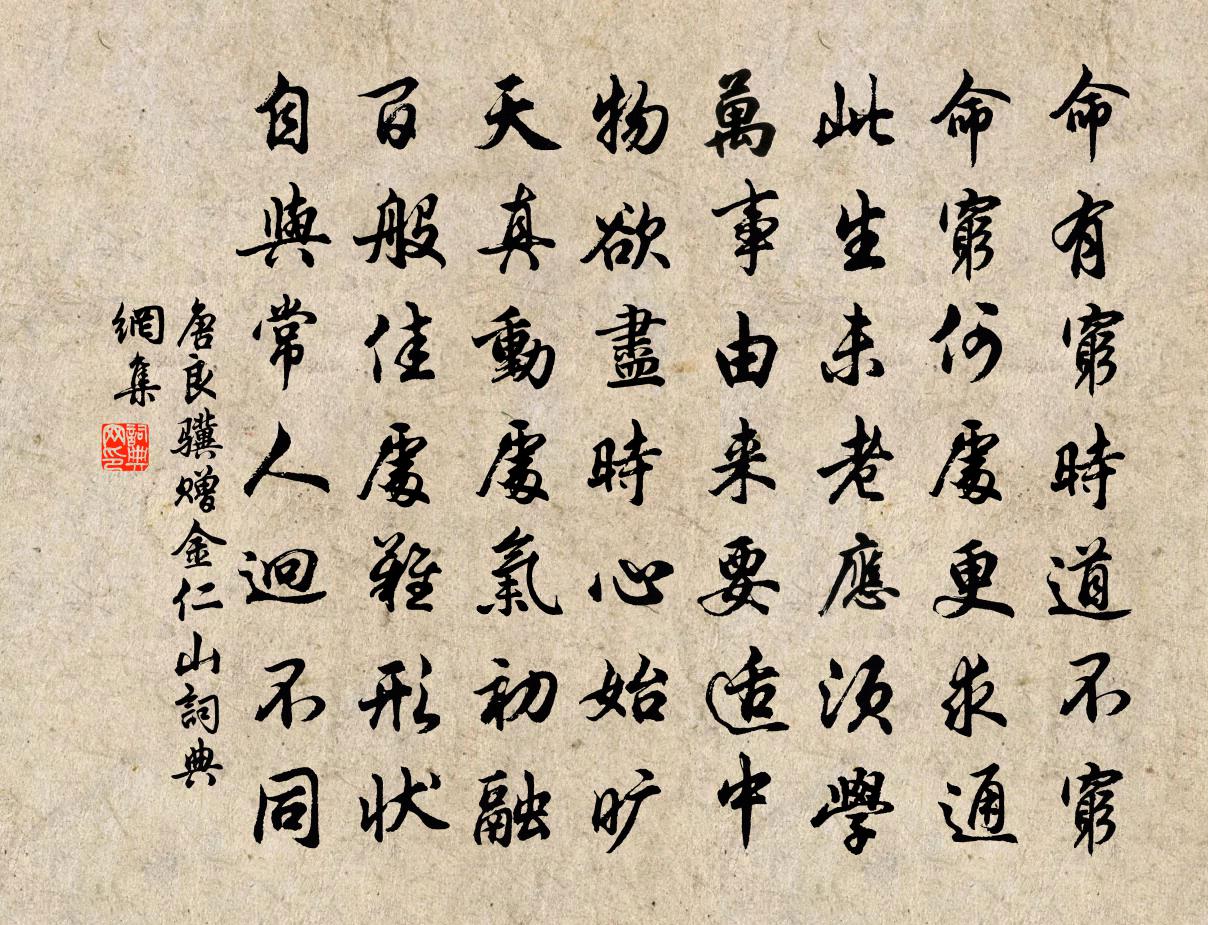 命有窮時道不窮
命窮何處更求通
此生未老應須學
萬事由来要适中
物欲盡時心始旷
天真動處氣初融
百般佳處難形狀
自與常人迥不同
唐良骥赠金仁山詞典
網集
詞典
网印